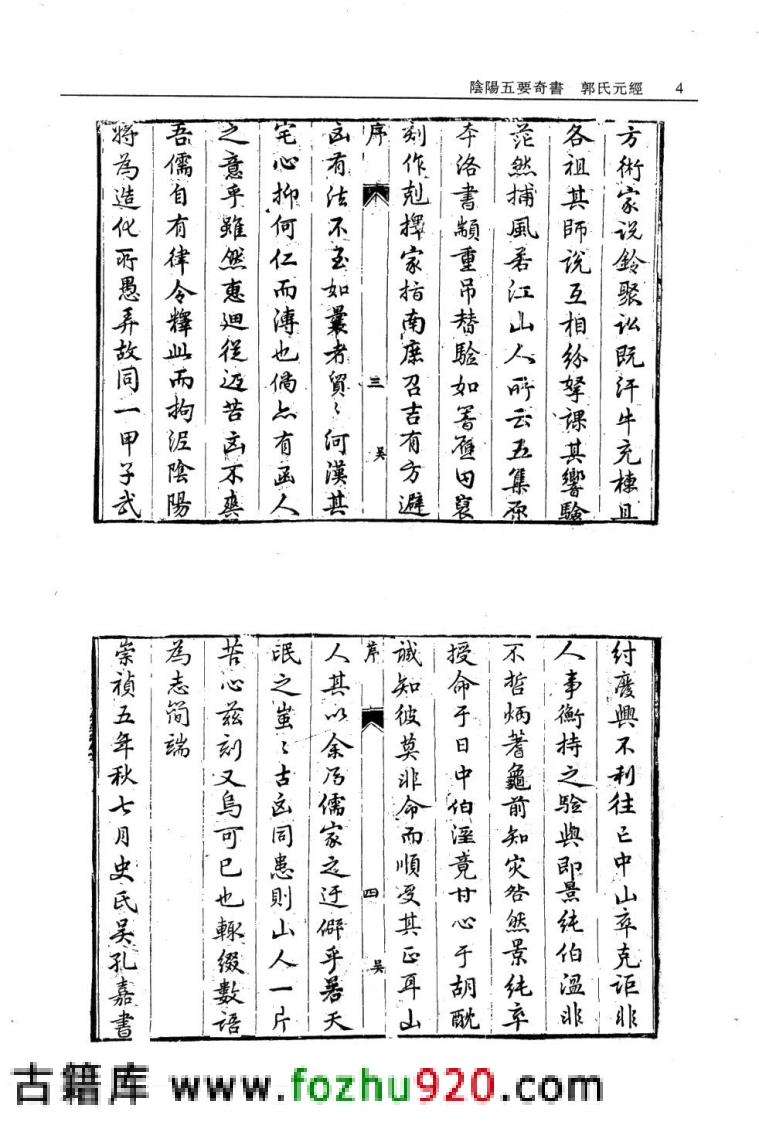 陰陽五要奇書　郭氏元經　4
方術家說鈴聚訟既汗牛充棟且
各祖其師說互相紛拏課其響驗
茫然捕風若江山人所云五集原
本洛書顓重吊替驗如蓍龜因裒
刻作剋擇家指南庶召吉有方避
序　三　吳
凶有法不至如曩者貿〻河漢其
宅心抑何仁而溥也倘亦有函人
之意乎雖然惠迪從逆吉凶不爽
吾儒自有律令釋此而拘泥陰陽
將為造化所愚弄故同一甲子武
紂廢興不利往亡中山卒克詎非
人事衡持之驗與即景純伯溫非
不哲炳蓍龜前知灾咎然景純卒
授命于日中伯溫竟甘心于胡酖
誠知彼莫非命而順受其正耳山
序　四　吳
人其以余為儒家之迂僻乎若夫
氓之蚩〻吉凶同患則山人一片
苦心茲刻又烏可已也輒綴數語
為志簡端
崇禎五年秋七月史氏吳孔嘉書
古籍库 www.fozhu920.com